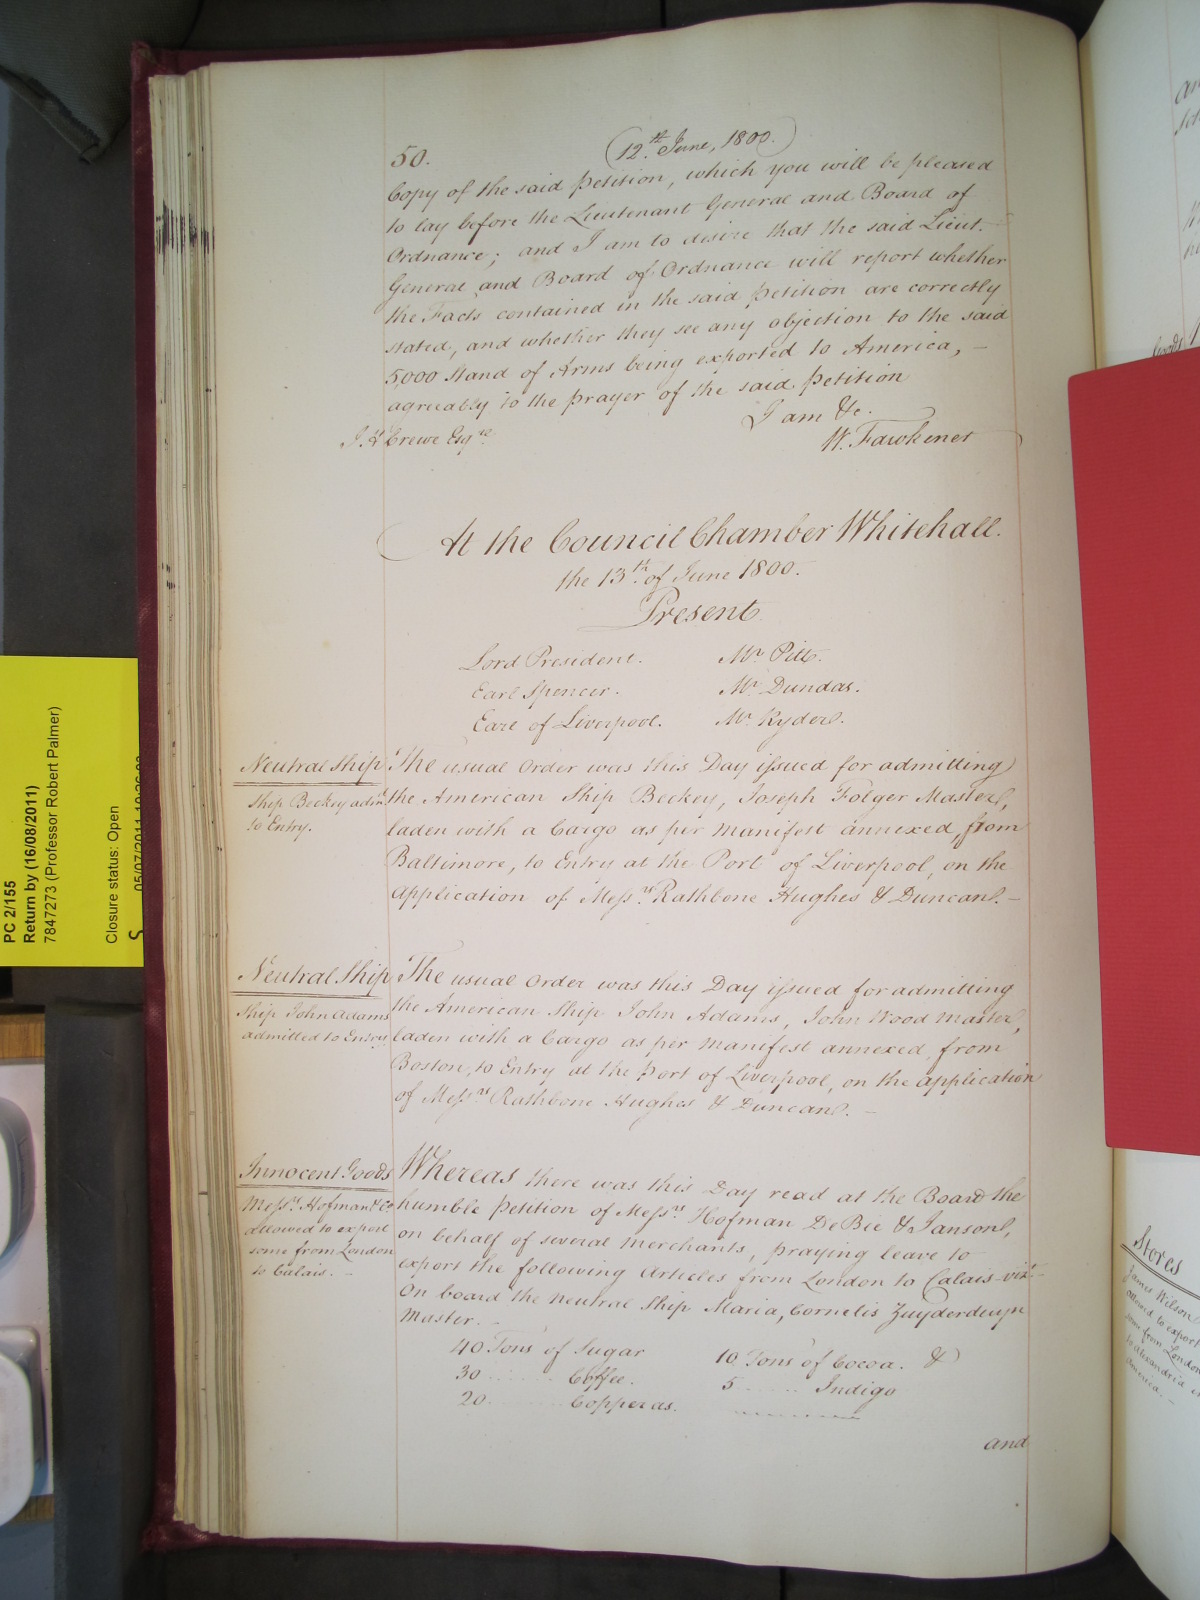 50.
(12.th June, 1800.)
Copy of the said Petition, which you will be pleased
to lay before the Lieutenant General and Board of
Ordnance; and I am to desire that the said Lieut.
General and Board of Ordnance will report whether
the Facts contained in the said Petition are correctly
stated, and whether they see any objection to the said
5,000 Stand of Arms being exported to America, —
agreeably to the prayer of the said Petition
I am &c.
Crewe Esqre.
W. Fawkener
At the Council Chamber Whitehall.
the 13th. of June 1800.
Present
Lord President. Mr. Pitt.
Earl Spencer. Mr. Dundas.
Earl of Liverpool. Mr. Ryder.
Neutral Ship
Ship Beckey admd.
to Entry.
The usual Order was this Day issued for admitting
the American Ship Beckey, Joseph Folger Master,
laden with a Cargo as per Manifest annexed, from
Baltimore, to Entry at the Port of Liverpool, on the
application of Messrs. Rathbone Hughes & Duncan. —
Neutral Ship
Ship John Adams
admitted to Entry
The usual Order was this Day issued for admitting
the American Ship John Adams, John Wood Master,
laden with a Cargo as per Manifest annexed, from
Boston, to Entry at the Port of Liverpool, on the application
of Messrs. Rathbone Hughes & Duncan. —
Innocent Goods
Messrs. Hofman & Co.
allowed to export
some from London
to Calais. —
Whereas there was this Day read at the Board the
humble Petition of Messrs. Hofman De Bie & Janson,
on behalf of several Merchants, praying leave to
export the following Articles from London to Calais vizt.
On board the Neutral Ship Maria, Cornelis Zuyderduyn
Master. —
40 Tons of Sugar 10 Tons of Cocoa. &
30 ........ Coffee. 5 ....... Indigo
20 ........ Copperas.
and
PC 2/155
Return by (16/08/2011)
7847273 (Professor Robert Palmer)
Closure status: Open
S
Stores
James Wilson
allowed to export
some from London
to Alexandria in
America. —